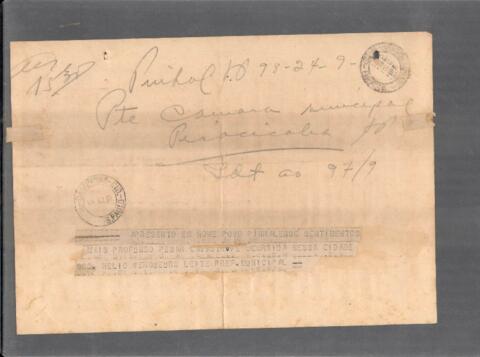 15,30
Pinhal SP 98-24-9-
Pte Camara Municipal
Piracicaba SP
Idt ao 97/9
APRESENTO EM NOME POVO PINHALENSE SENTIMENTOS
MAIS PROFUNDO PESAR CATASTROFE OCORRIDA NESSA CIDADE
HELIO VERGUEIRO LEITE PREF MUNICIPAL